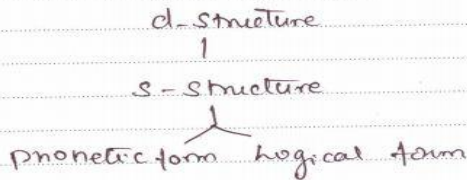 d-structure
s-structure
phonetic form Logical form